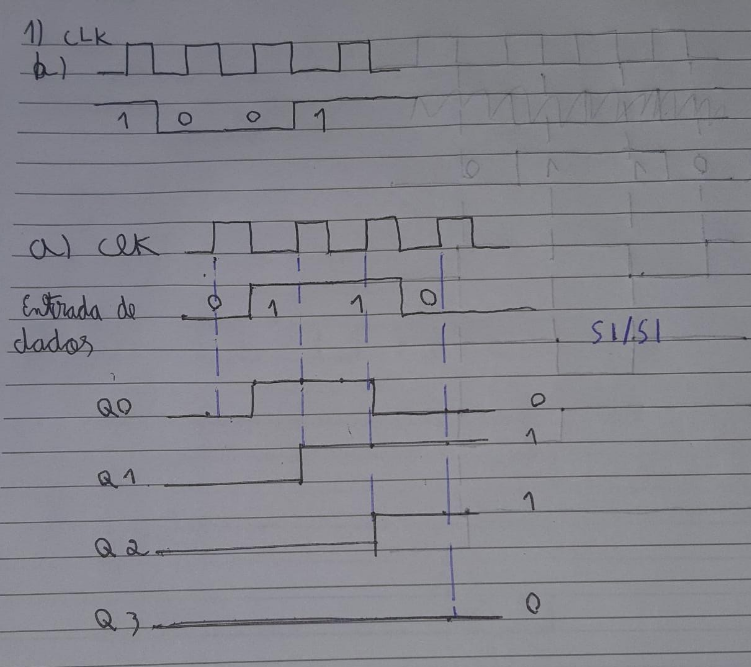 1) CLK
b)
1 0 0 1
0 1 1 0
a) ClK
Entrada de 0 1 1 0
dados
SI/SI
Q0 0
Q1 1
Q2 1
Q3 0